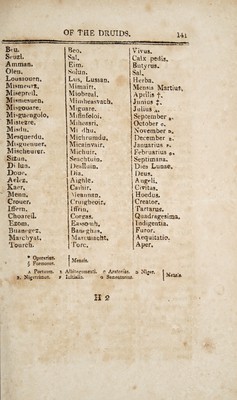 OF THE DRUIDS. 141
Beu. Beo. Vivus.
Seuzl. Sal. Calx pedis.
Amman. Eim. Butyrus.
Olen. Solun. Sal.
Loussouen. Lus, Lussan. Herba.
Mismeurs. Mimairt. Mensis Martius.
Misepreil. Miobreal. Aprilis †.
Mismesuen. Mimheasvach. Junius ‡.
Misgouare. Miguare. Julius
Mi-guengolo. Miseefoloi. September
Mishezre. Miheasri. October
Misdu. Mi dhu. November
Mesquerdu. Michrumdu. December
Misguenuer. Micainvair. Januarius
Mischeurer. Michuir. Februarius
Sizun. Seachtuin. Septimana.
Di lun. Dealluin. Dies Lunae.
Doue. Dia. Deus.
Aelez. Aighle. Angeli.
Kaer. Cathir. Civitas.
Menn. Meannan. Hoedus.
Crouer. Cruigheoir. Creator.
Iffern. Iffrin. Tartarus.
Choareil. Corgas.  Quadragesima.
Ezom. Easomh. Indigentia.
Buanegez. Banighas. Furor.
Marchyat. Marcuiacht. Aequitatio.
Tourch. Torc. Aper.
* Operariæ.
Mensis.
Niger.
Mensis
H 2